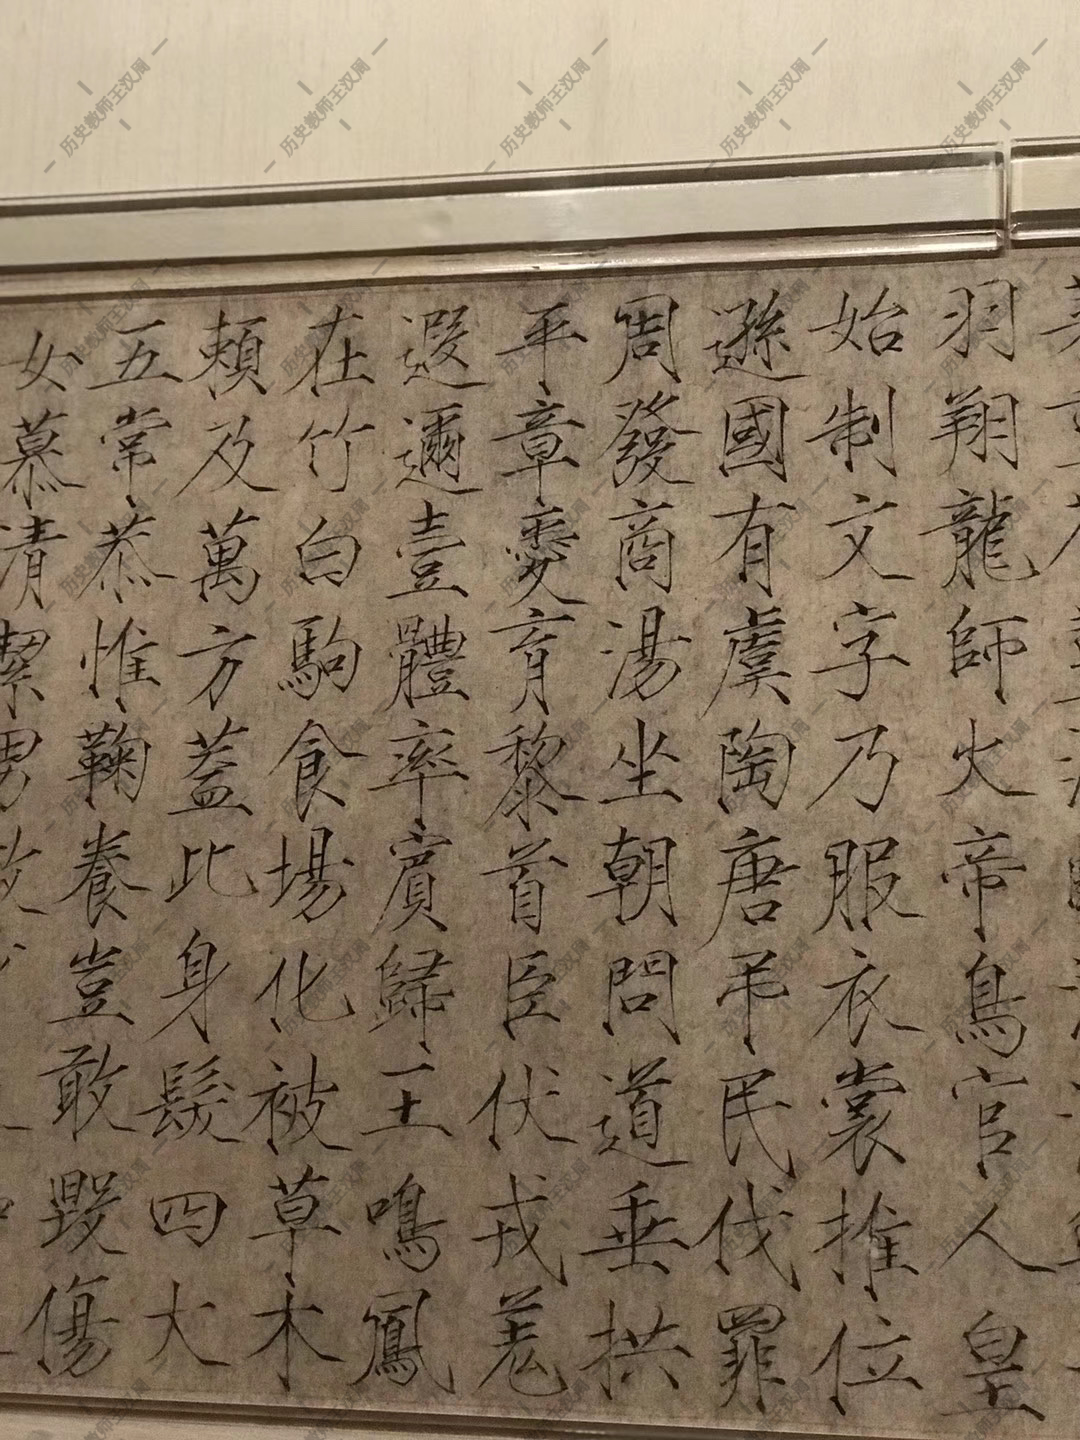 羽翔龍師火帝鳥官人皇
始制文字乃服衣裳推位
遜國有虞陶唐弔民伐罪
周發商湯坐朝問道垂拱
平章愛育黎首臣伏戎羌
遐邇壹體率賓歸王鳴鳳
在竹白駒食場化被草木
賴及萬方蓋此身髮四大
五常恭惟鞠養豈敢毀傷
女慕清絜男
历史教师王汉周